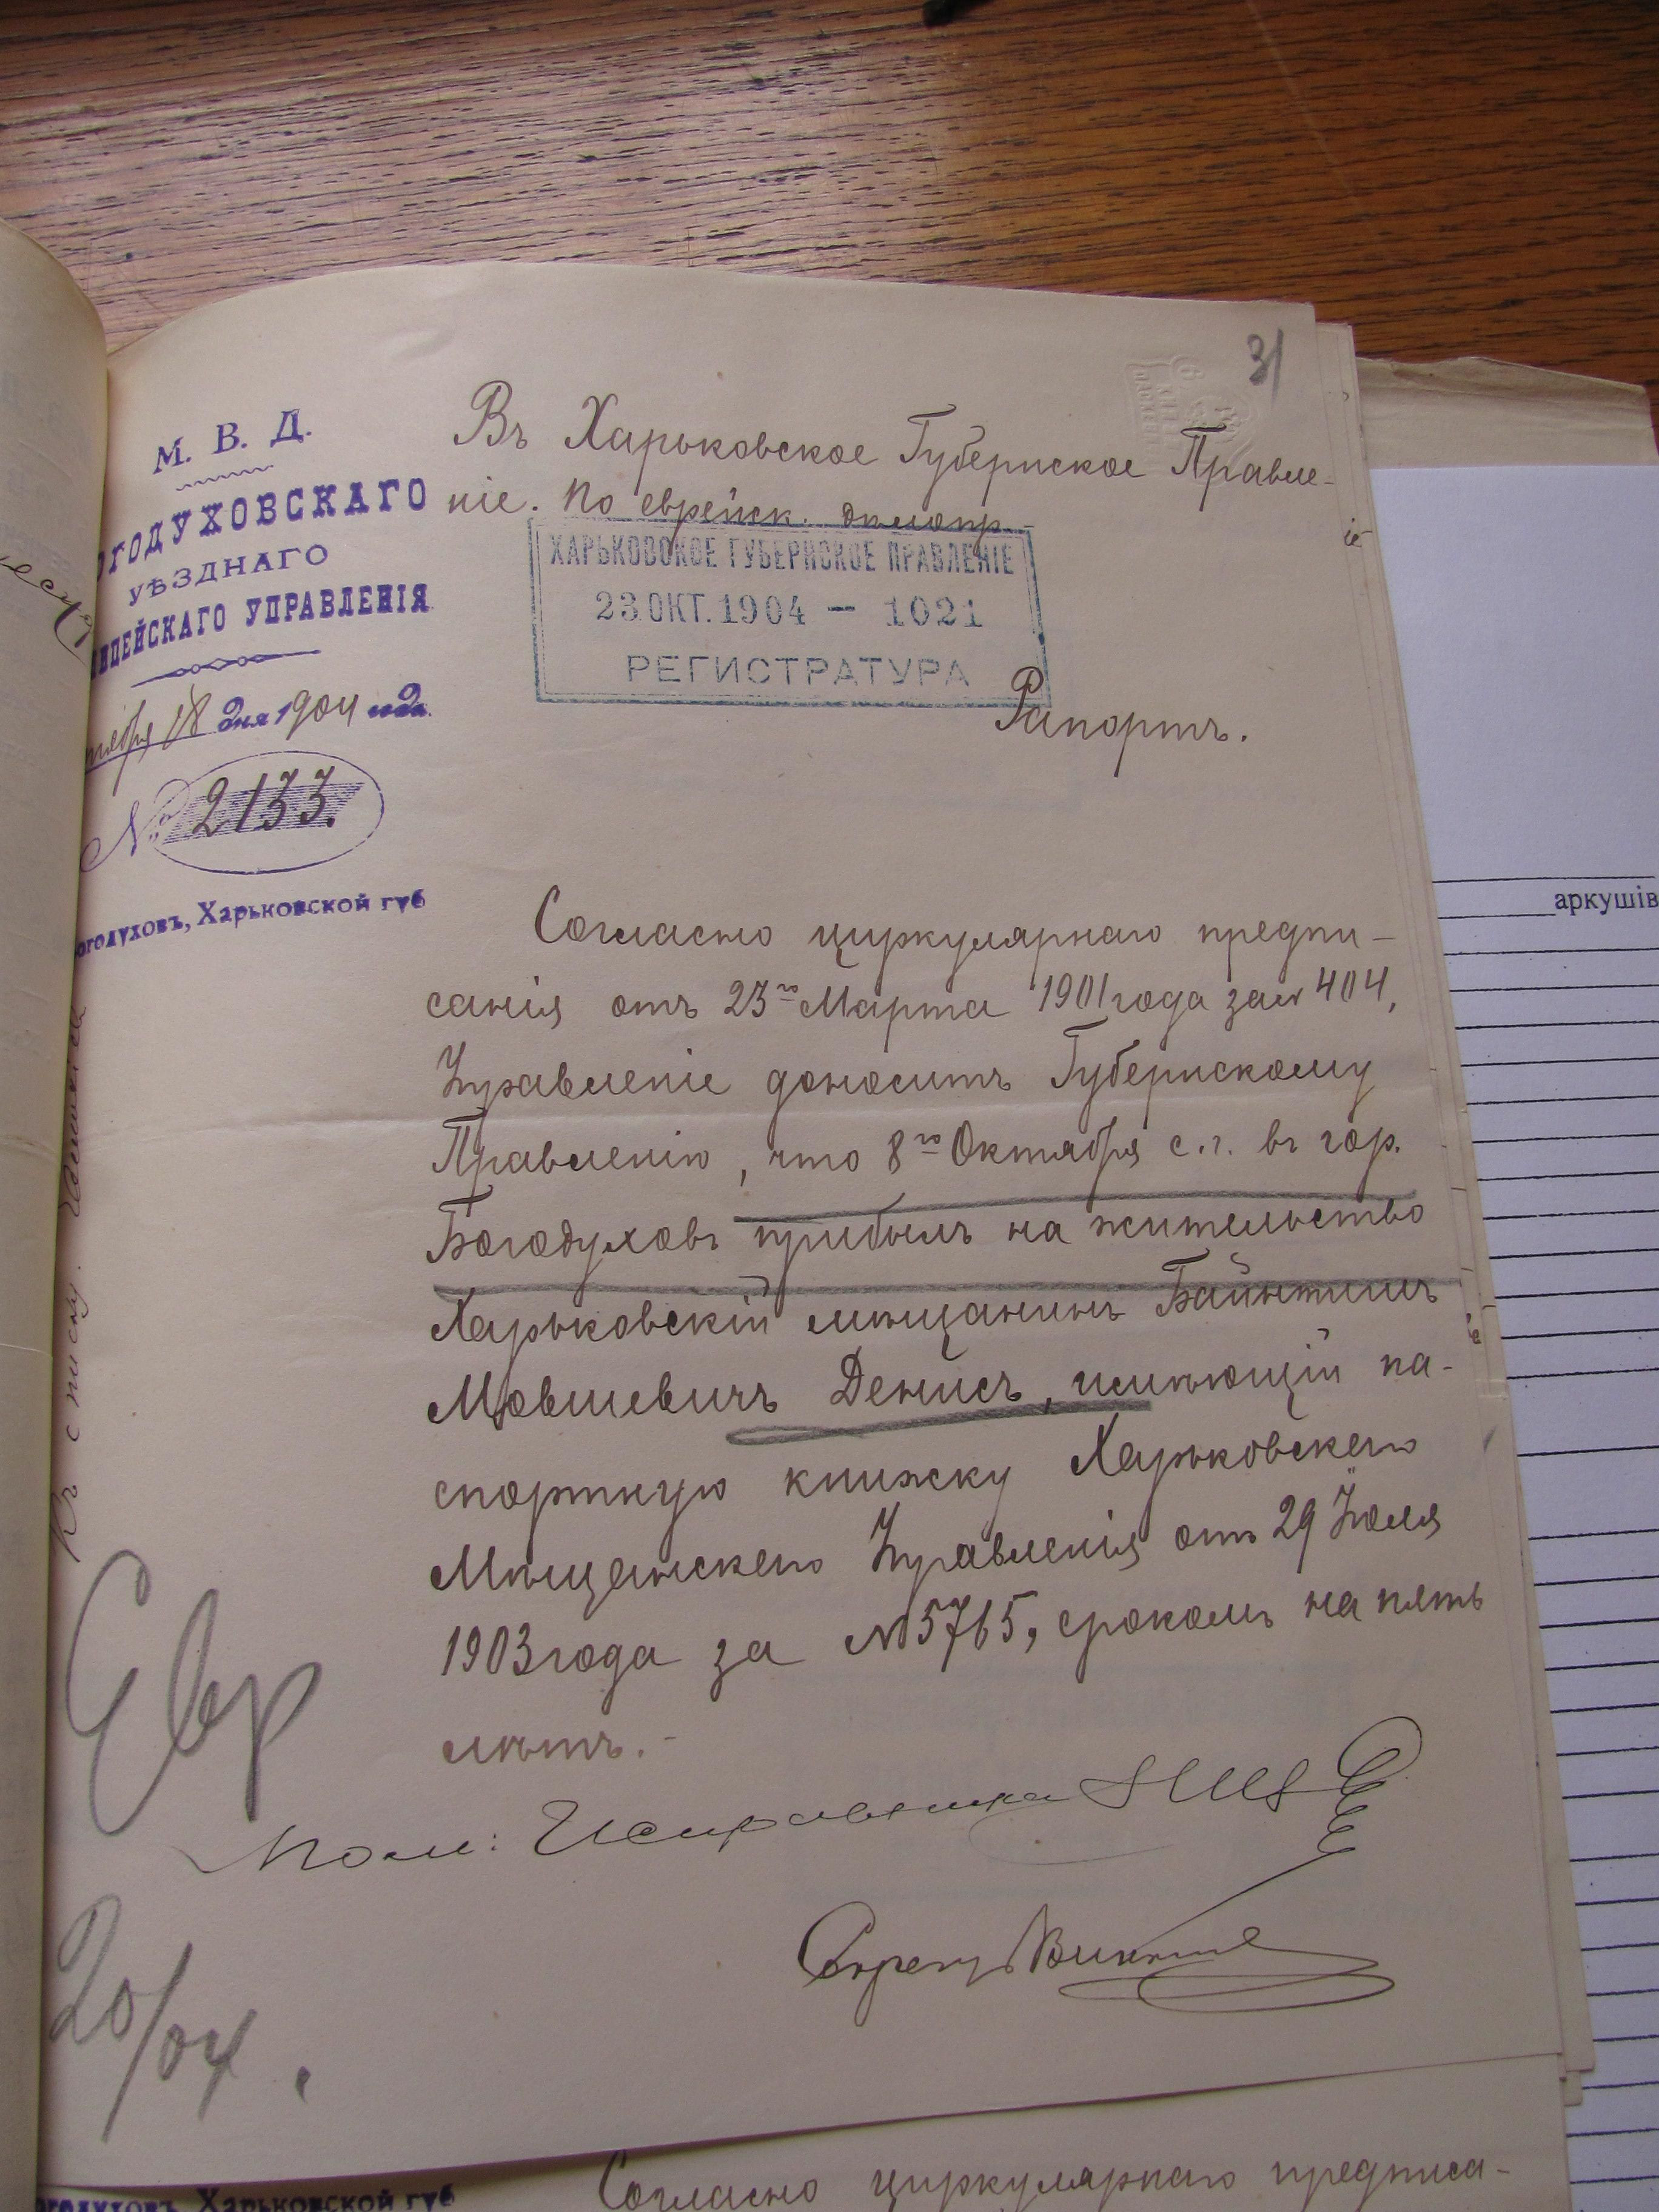 31
М. В. Д.
ОГОДУХОВСКАГО
УѢЗДНАГО
ИЦЕЙСКАГО УПРАВЛЕНІЯ
18 дня 1904 года.
№ 2133.
огодуховъ, Харьковской губ
Въ Харьковское Губернское Правле-
ніе. По еврейск.
ХАРЬКОВСКОЕ ГУБЕРНСКОЕ ПРАВЛЕНІЕ
23 ОКТ. 1904 — 1021
РЕГИСТРАТУРА
Рапортъ.
Согласно циркулярнаго предпи-
санія отъ 23го Марта 1901 года за № 404,
Управленіе доноситъ Губернскому
Правленію, что 8го Октября с.г. въ гор.
Богодуховъ прибылъ на жительство
Харьковскій мѣщанинъ
Мовшевичъ Денисъ, имѣющій па-
спортную книжку Харьковскаго
Мѣщанскаго Управленія отъ 29 Іюля
1903 года за № 5765, срокомъ на пять
лѣтъ.-
Пом: Исправника
Секрет.
Къ списку.
Евр
20/04.
аркушів
огодуховъ, Харьковской губ
Согласно циркулярнаго предписа-